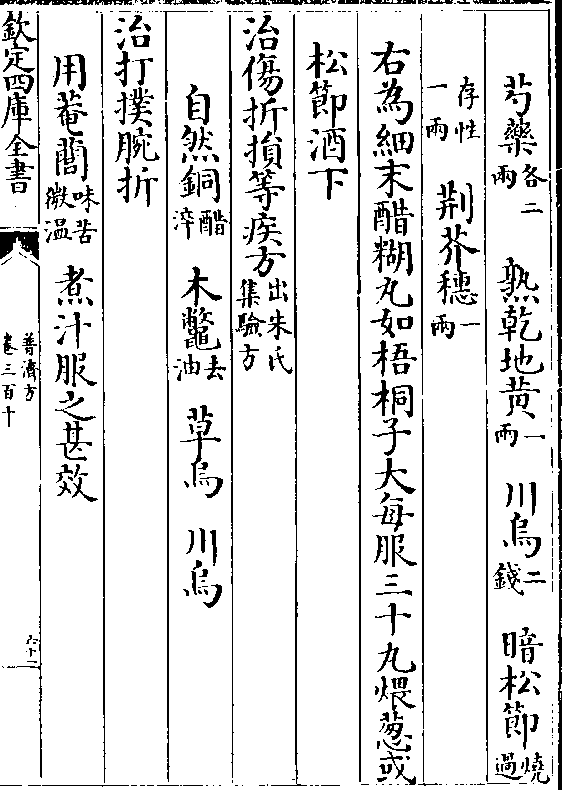 芍藥各二兩　熟乾地黄一兩　川烏二錢　暗松節燒過
存性一兩　荆芥穗一兩
右為細末醋糊丸如梧桐子大每服三十丸煨葱或
松節酒下
治傷折損等疾方出朱氏集驗方
自然銅醋淬　木鼈去油　草烏　川烏
治打撲腕折
用菴䕡味苦微温　煮汁服之甚效
欽定四庫全書　普濟方卷三百十　六十二